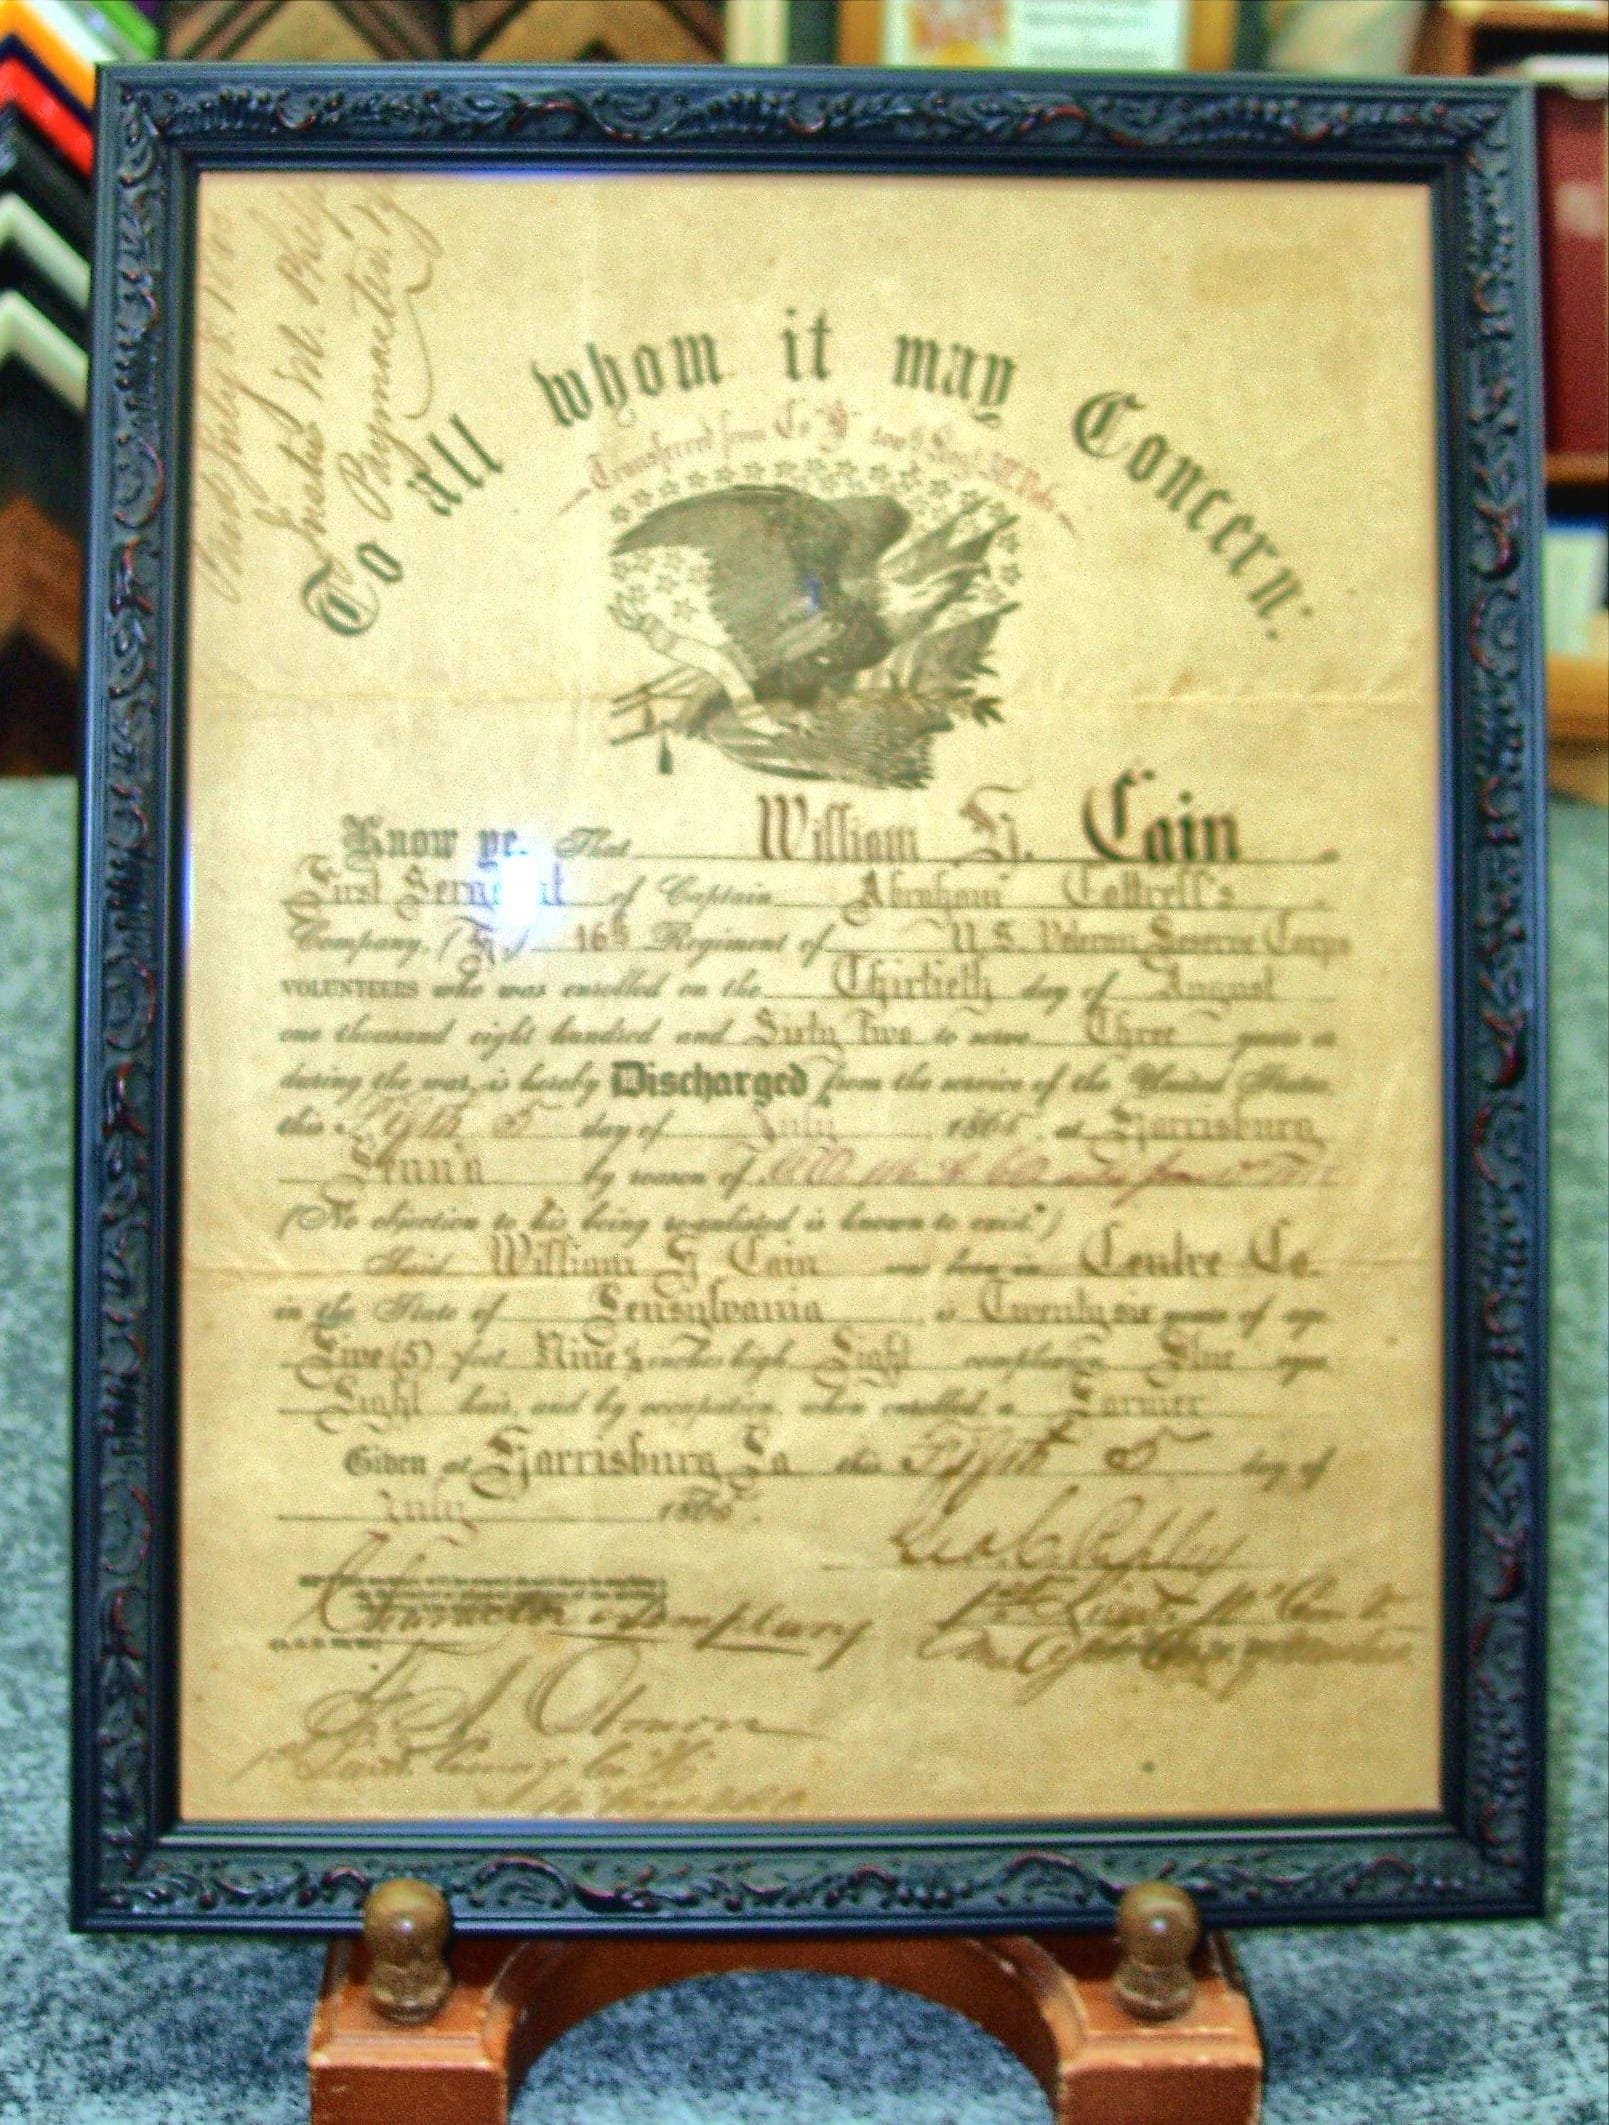 Paymaster
To all whom it may Concern:
Transferred from Co
Know ye, That William H. Cain
First Sergeant of Captain Abraham Cottrell's
Company, 16th Regiment of U.S. Veteran Reserve Corps
VOLUNTEERS who was enrolled on the Thirtieth day of August
one thousand eight hundred and Sixty Two to serve Three years or
during the war, is hereby Discharged from the service of the United States,
this Fifth 5 day of July, 1865, at Harrisburg
Penn'a by reason of
(No objection to his being re-enlisted is known to exist.)
Said William H Cain was born in Centre Co.
in the State of Pensylvania, is Twenty six years of age,
Five (5) feet Nine inches high, Light complexion, Blue eyes,
Light hair, and by occupation, when enrolled, a Farmer
Given at Harrisburg Pa this Fifth 5 day of
July 1865.
Character Exemplary
1st Lieut.
1st Lieut.